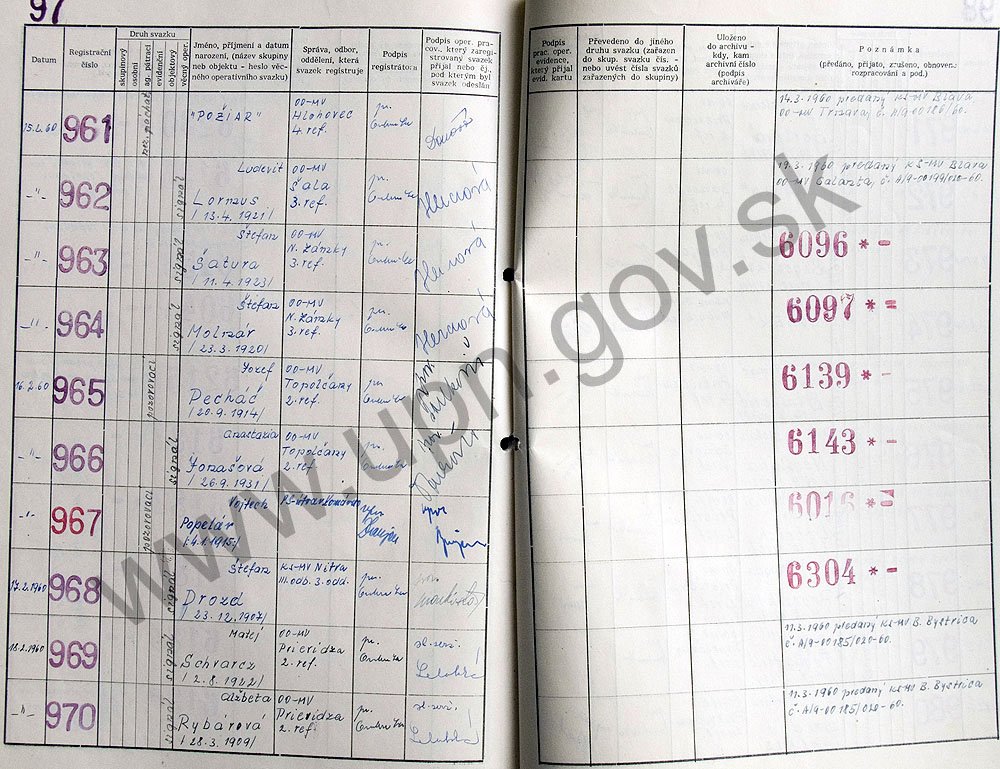 97
Datum
Registrační
číslo
Druh svazku
skupinový
osobní
ag. pátrací
evidenční
objektový
věcný oper.
Jméno, příjmení a datum
narození, (název skupiny
neb objektu - heslo věc-
ného operativního svazku)
Správa, odbor,
oddělení, která
svazek registruje
Podpis
registrátora
Podpis oper. pra-
cov., který zaregi-
strovaný svazek
přijal nebo čj.,
pod kterým byl
svazek odeslán
Podpis
prac. oper.
evidence,
který přijal
evid. kartu
Převedeno do jiného
druhu svazku (zařazen
do skup. svazku čís. -
nebo uvést čísla svazků
zařazených do skupiny)
Uloženo
do archivu -
kdy, kam
archivní číslo
(podpis
archiváře)
Poznámka
(předáno, přijato, zrušeno, obnoven.:
rozpracování a pod.)
15.2.60
961
"POŽIAR"
OO-MV
Hlohovec
4. ref.
14.3.1960 predaný KS-MV Blava
OO-MV Trnava, č. A/9-00186/60.
-"-
962
signál
Ludevit
Lornus
/13.4.1921/
OO-MV
Šala
3. ref.
14.3.1960 predaný KS-MV Blava
OO-MV Galanta, č. A/9-00199/020-60.
-"-
963
signál
Štefan
Šatura
/11.4.1923/
OO-MV
N. Zámky
3. ref.
6096 * -
-"-
964
signál
Štefan
Molnár
/23.3.1920/
OO-MV
N. Zámky
3. ref.
6097 * =
16.2.60
965
pozorovací
Jozef
Pecháč
/20.9.1914/
OO-MV
Topoľčany
2. ref.
6139 * -
-"-
966
signál
Anastazia
Jonašová
/26.9.1931/
OO-MV
Topoľčany
2. ref.
6143 * -
-"-
967
pozorovací
Vojtech
Popelár
/4.1.1915/
6016 * =
17.2.1960
968
signál
Štefan
Drozd
/23.12.1907/
KS-MV Nitra
III. odb. 3. odd.
6304 * -
18.2.1960
969
signál
Matej
Schvarcz
/2.8.1922/
OO-MV
Prievidza
2. ref.
11.3.1960 predaný KS-MV B. Bystrica
č. A/9-00185/020-60.
-"-
970
signál
Alžbeta
Rybárová
/28.3.1909/
OO-MV
Prievidza
2. ref.
11.3.1960 predaný KS-MV B. Bystrica
č. A/9-00185/020-60.
www.upn.gov.sk